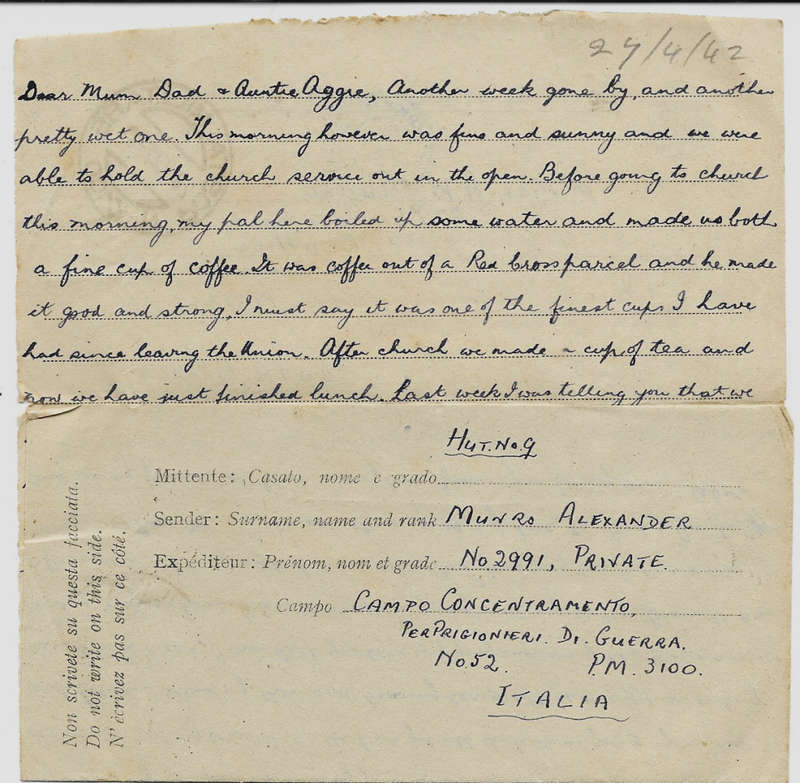 27/4/42
Dear Mum Dad & Auntie Aggie, Another week gone by, and another
pretty wet one. This morning however was fine and sunny and we were
able to hold the church service out in the open. Before going to church
this morning, my pal here boiled up some water and made us both
a fine cup of coffee. It was coffee out of a Red Cross parcel and he made
it good and strong, I must say it was one of the finest cups I have
had since leaving the Union. After church we made a cup of tea and
now we have just finished lunch. Last week I was telling you that we
HUT. NO. 9
Mittente: Casato, nome e grado
Sender: Surname, name and rank MUNRO ALEXANDER
Expéditeur: Prénom, nom et grade No 2991, PRIVATE.
Campo CAMPO CONCENTRAMENTO,
PER PRIGIONIERI. DI. GUERRA.
No. 52. P.M. 3100.
ITALIA
Non scrivete su questa facciata.
Do not write on this side.
N' écrivez pas sur ce côté.